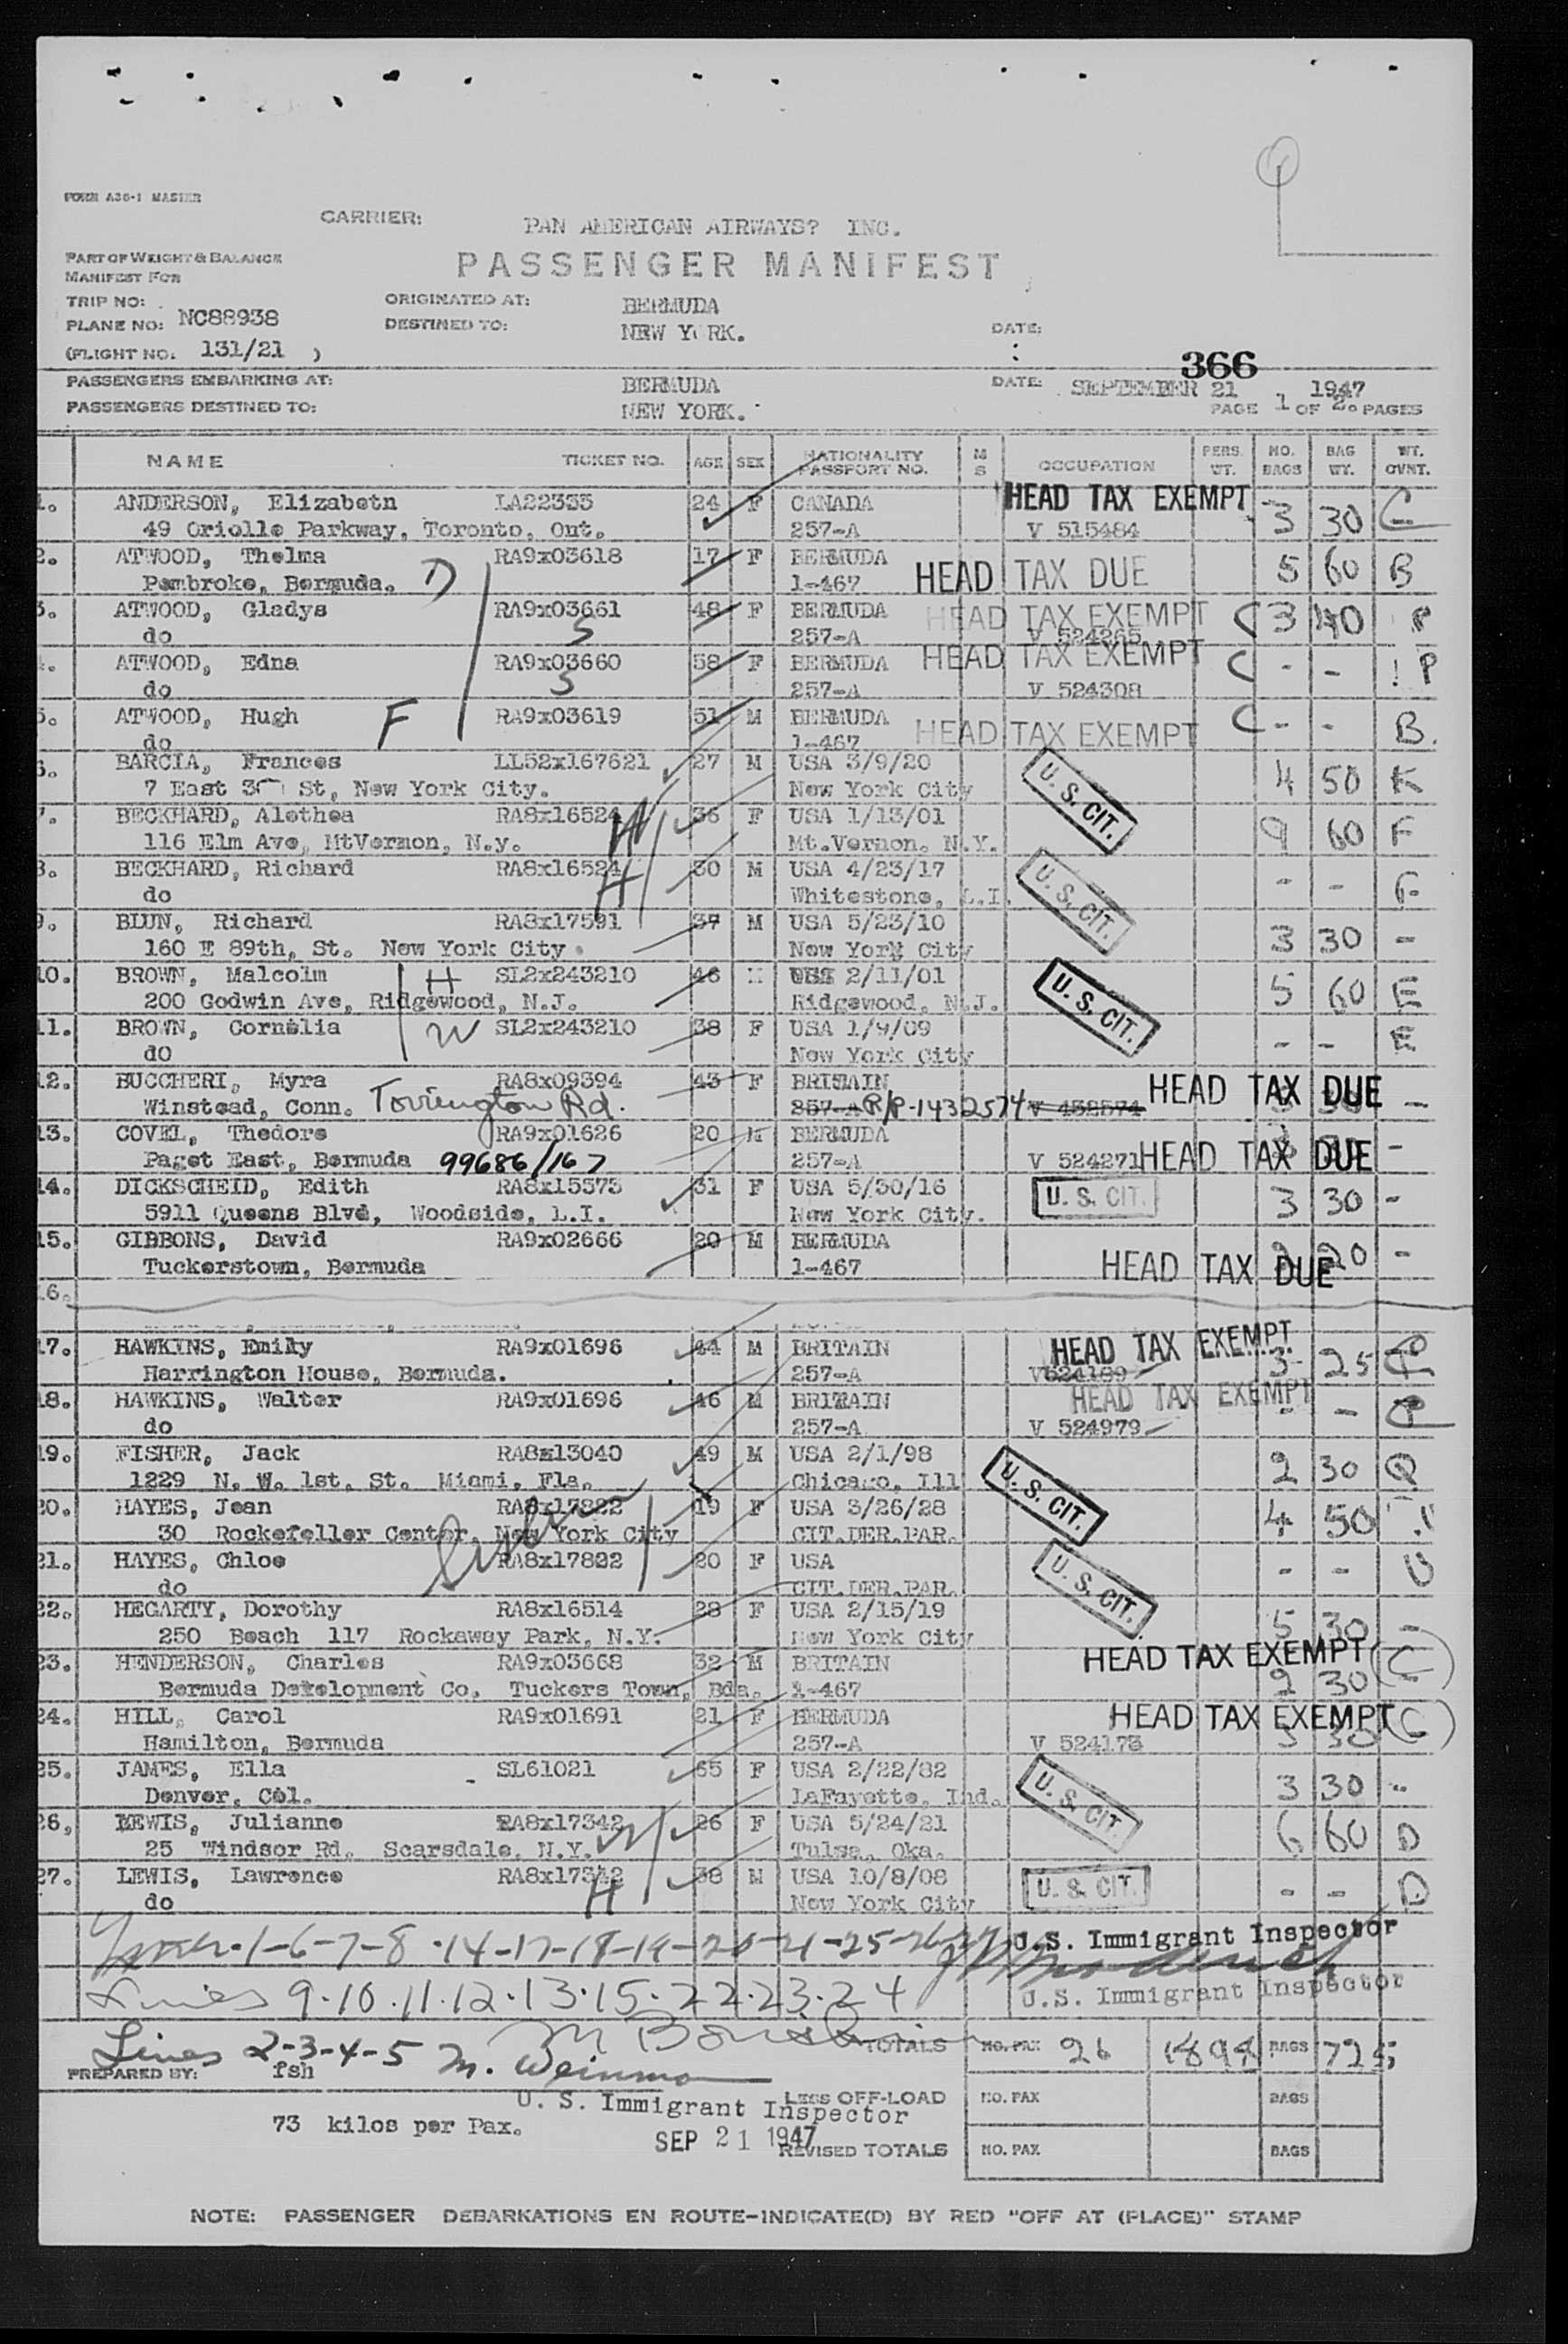 FORM A36-1 MASTER
CARRIER: PAN AMERICAN AIRWAYS? INC.
PART OF WEIGHT & BALANCE
MANIFEST FOR
PASSENGER MANIFEST
TRIP NO:
ORIGINATED AT: BERMUDA
PLANE NO: NC88938
DESTINED TO: NEW YORK.
DATE:
(FLIGHT NO. 131/21 )
366
PASSENGERS EMBARKING AT: BERMUDA
DATE: SEPTEMBER 21 1947
PASSENGERS DESTINED TO: NEW YORK.
PAGE 1 OF 2. PAGES
NAME TICKET NO. AGE SEX NATIONALITY PASSPORT NO. M S OCCUPATION PERS. WT. NO. BAGS BAG WT. WT. OVNT.
1. ANDERSON, Elizabeth LA22333 24 F CANADA HEAD TAX EXEMPT 3 30 C
49 Oriolle Parkway, Toronto, Ont. 257-A V 515484
2. ATWOOD, Thelma RA9x03618 17 F BERMUDA HEAD TAX DUE 5 60 B
Pembroke, Bermuda. D 1-467
3. ATWOOD, Gladys RA9x03661 48 F BERMUDA HEAD TAX EXEMPT C 3 40 P
do S 257-A V 524265
4. ATWOOD, Edna RA9x03660 58 F BERMUDA HEAD TAX EXEMPT C - - P
do S 257-A V 524308
5. ATWOOD, Hugh F RA9x03619 51 M BERMUDA HEAD TAX EXEMPT C - - B.
do 1-467
6. BARCIA, Frances LL52x167621 27 M USA 3/9/20 U.S. CIT. 4 50 K
7 East St, New York City. New York City
7. BECKHARD, Alethea RA8x16524 W 36 F USA 1/13/01 9 60 F
116 Elm Ave, MtVernon, N.y. Mt.Vernon, N.Y.
8. BECKHARD, Richard RA8x16524 H 30 M USA 4/23/17 U.S. CIT. - -
do Whitestone, L.I.
9. BLUN, Richard RA8x17591 37 M USA 5/23/10 3 30 -
160 E 89th, St. New York City. New York City
10. BROWN, Malcolm H SL2x243210 46 USA 2/11/01 U.S. CIT. 5 60 E
200 Godwin Ave, Ridgewood, N.J. Ridgewood, N.J.
11. BROWN, Cornelia W SL2x243210 38 F USA 1/9/09 - - E
do New York City
12. BUCCHERI, Myra RA8x09394 43 F BRITAIN HEAD TAX DUE -
Winstead, Conn. Torrington Rd. 257-A R/P-1432574 V 432574
13. COVEL, Thedore RA9x01626 20 M BERMUDA HEAD TAX DUE -
Paget East, Bermuda 99686/167 257-A V 524271
14. DICKSCHEID, Edith RA8x15573 31 F USA 5/30/16 U.S. CIT. 3 30 -
5911 Queens Blvd, Woodside, L.I. New York City.
15. GIBBONS, David RA9x02666 20 M BERMUDA HEAD TAX DUE 20 -
Tuckerstown, Bermuda 1-467
16.
17. HAWKINS, Emily RA9x01696 44 M BRITAIN HEAD TAX EXEMPT 3 25
Harrington House, Bermuda. 257-A
18. HAWKINS, Walter RA9x01696 46 M BRITAIN HEAD TAX EXEMPT - -
do 257-A V 524979
19. FISHER, Jack RA8x13040 49 M USA 2/1/98 U.S. CIT. 2 30 Q
1229 N. W. 1st. St. Miami, Fla. Chicago, Ill
20. HAYES, Jean RA8x17822 19 F USA 3/26/28 4 50 U
30 Rockefeller Center, New York City Sister CIT.DER.PAR.
21. HAYES, Chloe RA8x17822 20 F USA U.S. CIT. - - U
do CIT.DER.PAR.
22. HEGARTY, Dorothy RA8x16514 28 F USA 2/15/19 5 30 -
250 Beach 117 Rockaway Park, N.Y. New York City
23. HENDERSON, Charles RA9x03668 32 M BRITAIN HEAD TAX EXEMPT 2 30 (C)
Bermuda Development Co, Tuckers Town, Bda. 1-467
24. HILL, Carol RA9x01691 21 F BERMUDA HEAD TAX EXEMPT 3 30 (C)
Hamilton, Bermuda 257-A V 524173
25. JAMES, Ella SL61021 65 F USA 2/22/82 U.S. CIT. 3 30 -
Denver, Col. LaFayette, Ind.
26, LEWIS, Julianne RA8x17342 W 26 F USA 5/24/21 6 60 D
25 Windsor Rd. Scarsdale, N.Y. Tulsa, Oka.
27. LEWIS, Lawrence RA8x17342 H 38 M USA 10/8/08 U.S. CIT. - - D
do New York City
1-6-7-8-14-17-18-19-20-21-25-26-27 U.S. Immigrant Inspector
Lines 9.10.11.12.13.15.22.23.24 U.S. Immigrant Inspector
Lines 2-3-4-5 M. Weinman
TOTALS NO. PAX 26 1898 BAGS 725
PREPARED BY: fsh
U. S. Immigrant Inspector
LESS OFF-LOAD NO. PAX BAGS
73 kilos per Pax.
SEP 21 1947
REVISED TOTALS NO. PAX BAGS
NOTE: PASSENGER DEBARKATIONS EN ROUTE-INDICATE(D) BY RED "OFF AT (PLACE)" STAMP